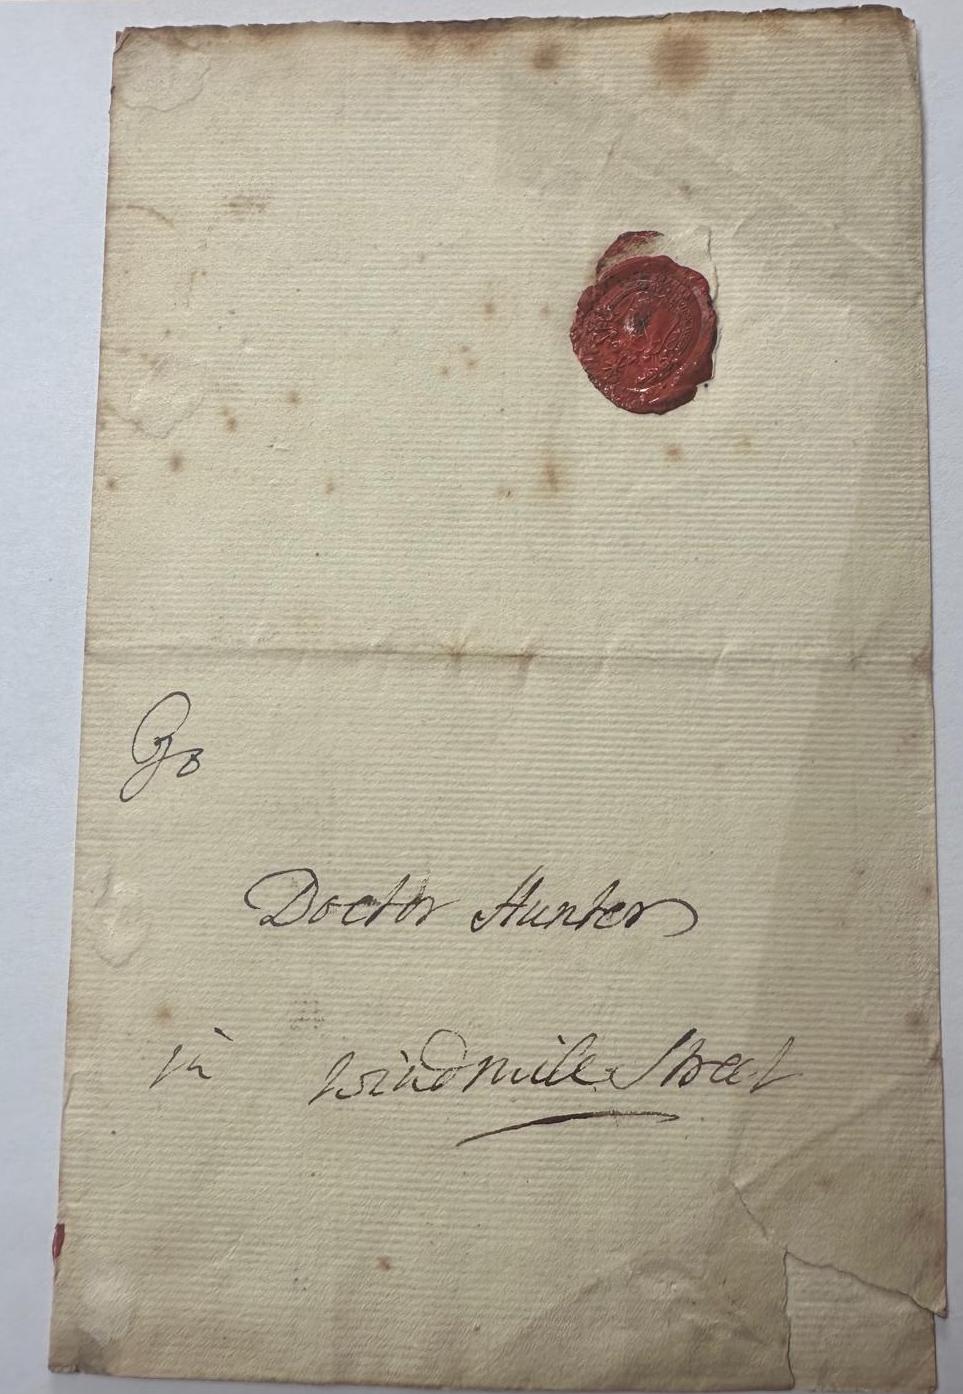 To
Doctor Hunter
in Windmile Street